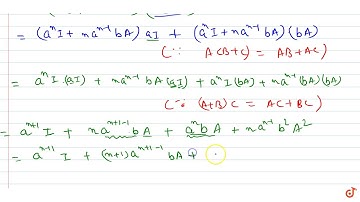 = (aⁿI + naⁿ⁻¹bA) aI + (aⁿI + naⁿ⁻¹bA)(bA)
(∵ A(B+C) = AB+AC)
= aⁿI.(aI) + naⁿ⁻¹bA(aI) + aⁿI(bA) + naⁿ⁻¹(bA)(bA)
(∵ (A+B)C = AC+BC)
= aⁿ⁺¹I + naⁿ⁺¹⁻¹bA + aⁿbA + naⁿ⁻¹b²A²
= aⁿ⁺¹I + (n+1)aⁿ⁺¹⁻¹bA +